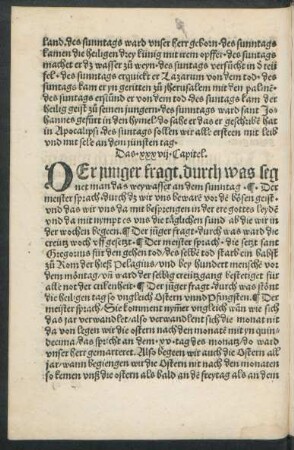 land. des sunntags ward vnser herr geborn. des sunntags
kamen die heiligen drey künig mit irem opffer. des sunntags
machet er dz wasser zů weyn. des suntags versůcht in d teü
fel. des sunntags erquickt er Lazarum von dem tod. des
suntags kam er yn geritten zů Jherusalem mit den palmē.
des suntags erstůnd er von dem tod. des suntags kam der
heilig geist zů seinen jungern. des sunntags ward sant Jo-
hannes gefürt in den hymel. do sahe er das er geschribē hat
in Apocalipsi. des suntags sollen wir alle ersteen mit leib
vnd mit selle an dem jünsten tag.
Das. xxxvij. Capitel.
DEr junger fragt, durch was seg
net man das weywasser an dem sunntag. ¶. Der
meister sprach. durch dz wir vns bewarē vor dē bösen geist.
vnd das wir vns da mit besprengen in der ere gottes leydē
vnd da mit nympt es vns die täglichen sünd ab die wir in
der wochen begeen. ¶ Der jüger fragt. durch was ward die
creütz woch vff gesetzt. ¶ Der meister sprach. die setzt sant
Gregorius für den gehen tod. des selbē tod starb ein babst
zů Rom der hieß Pelagius. vnd bey hundert menschē vor
dem möntag. vñ ward der selbig creützgang bestetiget für
alle not der cristenheit. ¶ Der jüger fragt. durch was stönt
die heiligen tag so vnglich Ostern vnnd Pfingsten. ¶ Der
meister sprach. Sie komment nymer vnglich wañ wie sich
das jar verwandlet. also verwandlent sich die monat nit
da von legen wir die ostern nach den monatē mit yn quin-
decima. das spricht an dem. xv. tag des monatz. do ward
vnser herr gemarteret. Also begeen wir auch die Ostern all
jar. wann begiengen wir die Ostern nit nach den monaten
so kemen vnß die ostern als bald an dē freytag als an dem